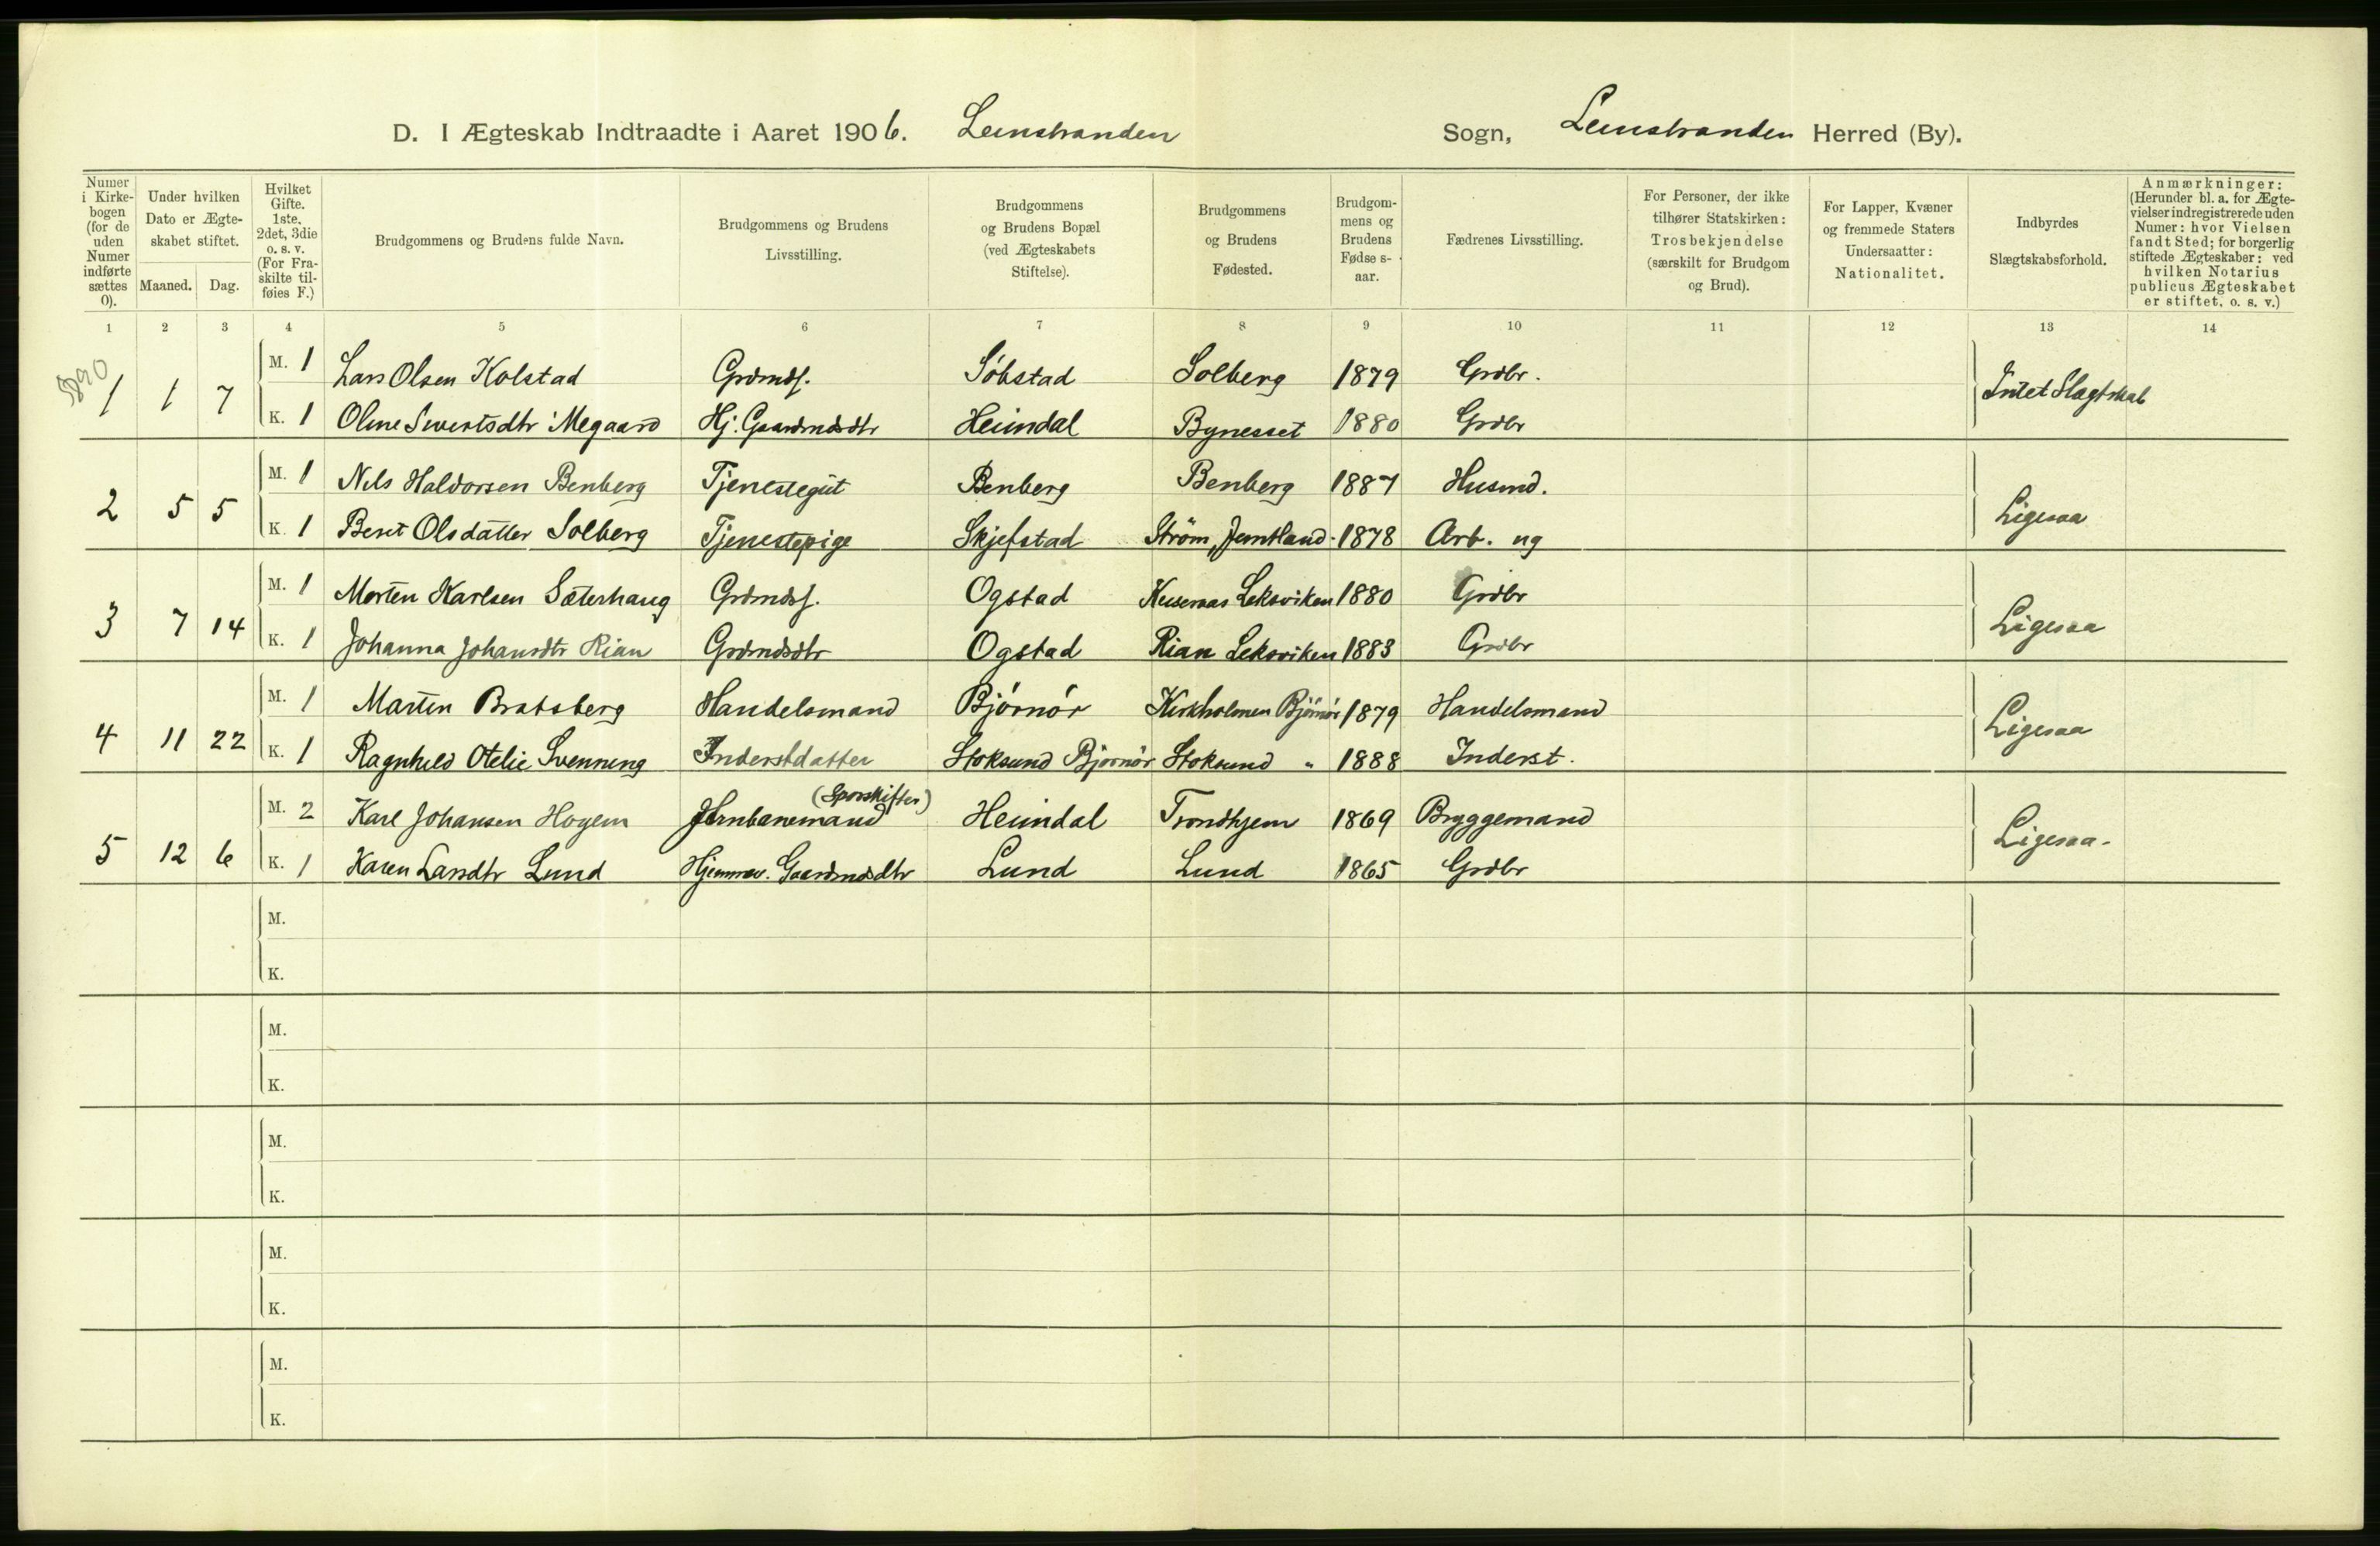 D. I Ægteskab Indtraadte i Aaret 1906. Leinstranden Sogn, Leinstranden Herred (By).
Numer i Kirkebogen (for de uden Numer indførte sættes 0).
Under hvilken Dato er Ægteskabet stiftet.
Maaned. Dag.
Hvilket Gifte. 1ste, 2det, 3die o. s. v. (For Fraskilte tilføies F.)
Brudgommens og Brudens fulde Navn.
Brudgommens og Brudens Livsstilling.
Brudgommens og Brudens Bopæl (ved Ægteskabets Stiftelse).
Brudgommens og Brudens Fødested.
Brudgommens og Brudens Fødse s-aar.
Fædrenes Livsstilling.
For Personer, der ikke tilhører Statskirken: Trosbekjendelse (særskilt for Brudgom og Brud).
For Lapper, Kvæner og fremmede Staters Undersaatter: Nationalitet.
Indbyrdes Slægtskabsforhold.
Anmærkninger: (Herunder bl. a. for Ægtevielser indregistrerede uden Numer: hvor Vielsen fandt Sted; for borgerlig stiftede Ægteskaber: ved hvilken Notarius publicus Ægteskabet er stiftet, o. s. v.)
1 2 3 4 5 6 7 8 9 10 11 12 13 14
1 1 7 M. 1 Lars Olsen Kolstad Grdmds. Søbstad Solberg 1879 Grdbr. Intet Slægtskab
K. 1 Oline Sivertsdtr Megaard Hj. Gaardmdsdtr Heimdal Bynesset 1880 Grdbr
2 5 5 M. 1 Nils Haldorsen Benberg Tjenestegut Benberg Benberg 1887 Husmd. Ligesaa
K. 1 Beret Olsdatter Solberg Tjenestepige Skjefstad Ström, Jemtland 1878 Arb. ug
3 7 14 M. 1 Morten Karlsen Sæterhaug Grdmds. Ogstad Leksviken 1880 Grdbr Ligesaa
K. 1 Johanna Johansdtr Rian Grdmdsdtr Ogstad Rian Leksviken 1883 Grdbr
4 11 22 M. 1 Martin Bratsberg Handelsmand Bjørnør Kirkholmen Bjørnør 1879 Handelsmand Ligesaa
K. 1 Ragnhild Otelie Svenning Inderstdatter Stoksund Bjørnør Stoksund " 1888 Inderst.
5 12 6 M. 2 Karl Johansen Hogem Jernbanemand (Sporskifter) Heimdal Trondhjem 1869 Bryggemand Ligesaa.
K. 1 Karen Larsdtr Lund Hjemmev. Gaardmdsdtr Lund Lund 1865 Grdbr
M.
K.
M.
K.
M.
K.
M.
K.
M.
K.